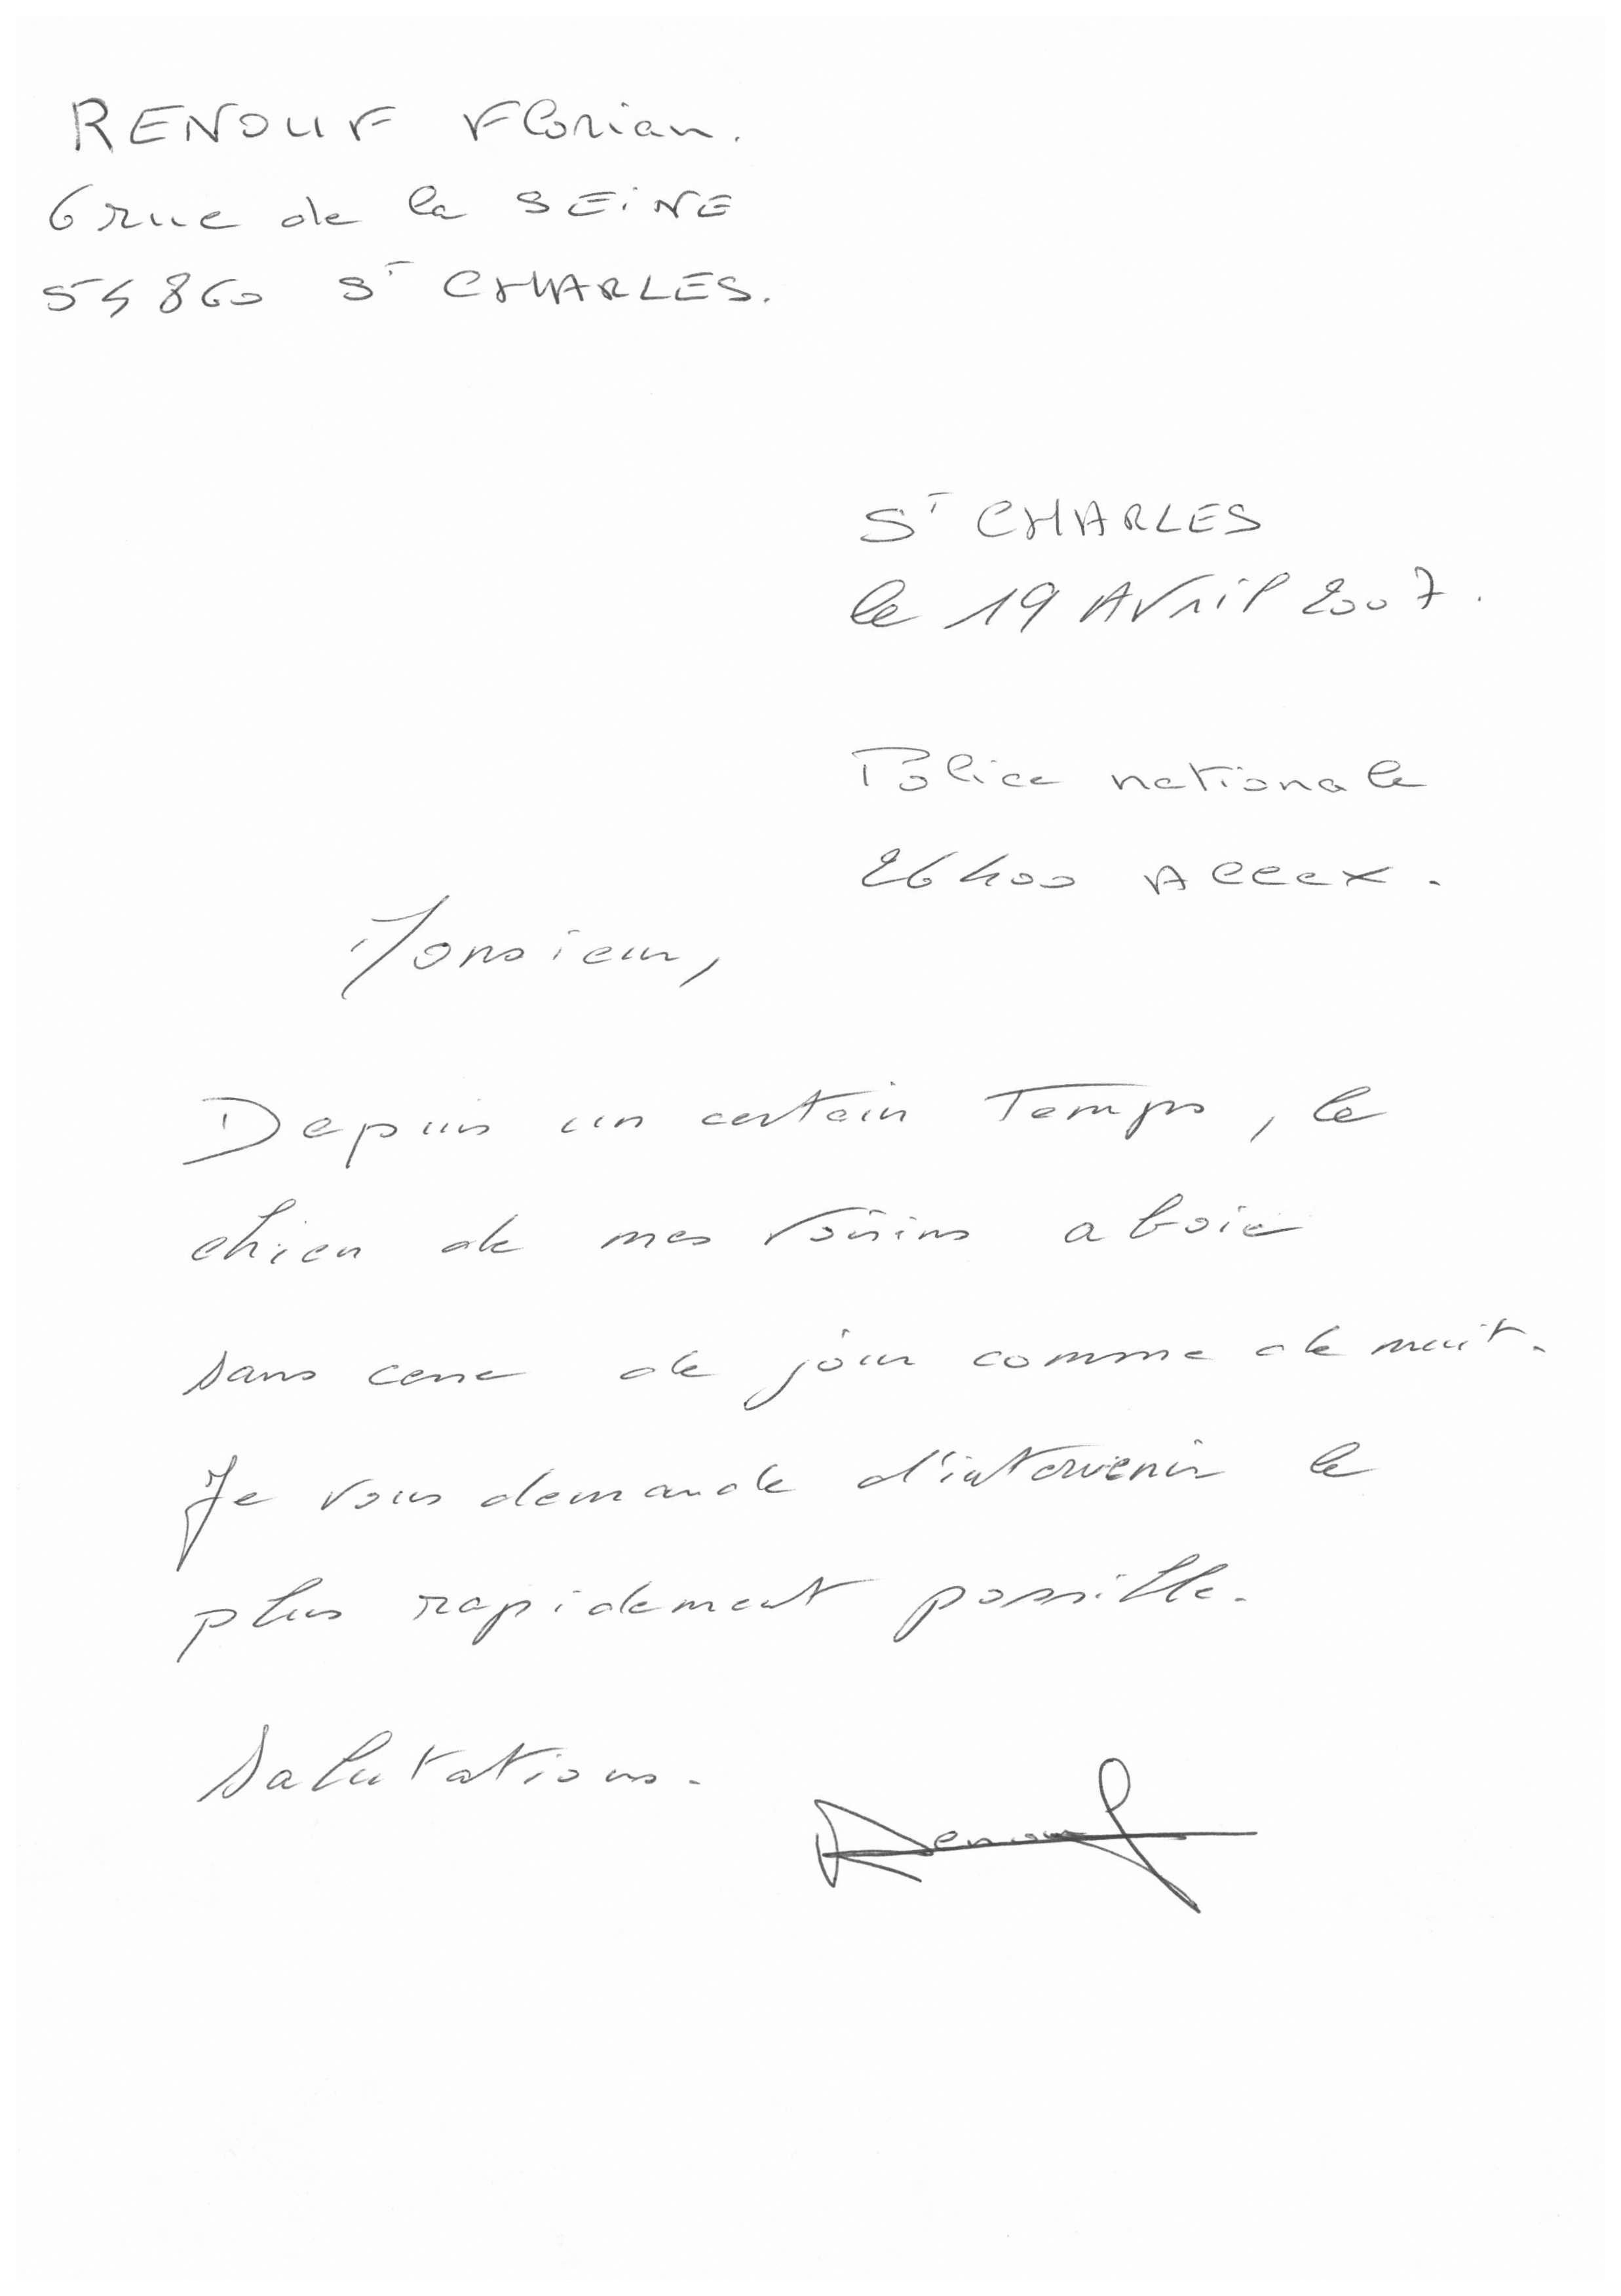 RENOUF Florian.
6 rue de la SEINE
54860 St CHARLES.
St CHARLES
le 19 Avril 2007.
Police nationale
26400 Allex.
Monsieur,
Depuis un certain Temps, le
chien de mes voisins aboie
sans cesse de jour comme de nuit.
Je vous demande d'intervenir le
plus rapidement possible.
Salutations.
Renouf